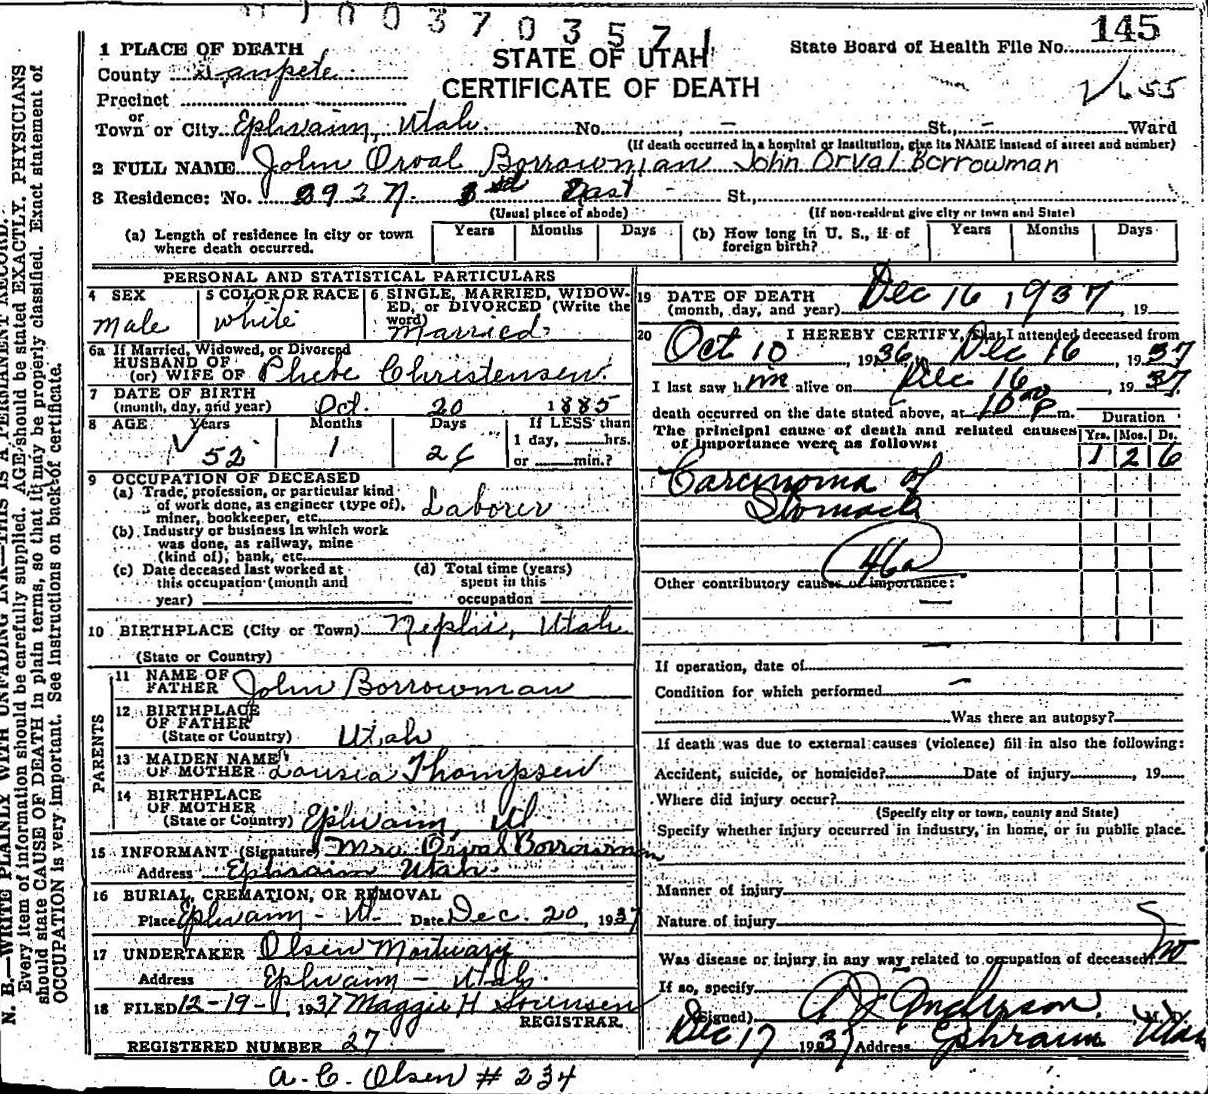 003703571
145
1 PLACE OF DEATH
STATE OF UTAH
State Board of Health File No.
County Sanpete
CERTIFICATE OF DEATH
655
Precinct
or
Town or City Ephraim, Utah. No. , — St., — Ward
(If death occurred in a hospital or institution, give its NAME instead of street and number)
2 FULL NAME John Orval Borrowman John Orval Borrowman
3 Residence: No. 293 N. 3rd East St.,
(Usual place of abode) (If non-resident give city or town and State)
(a) Length of residence in city or town where death occurred. Years Months Days (b) How long in U. S., if of foreign birth? Years Months Days
PERSONAL AND STATISTICAL PARTICULARS
4 SEX
Male
5 COLOR OR RACE
white
6 SINGLE, MARRIED, WIDOW-
ED, or DIVORCED (Write the
word) Married
6a If Married, Widowed, or Divorced
HUSBAND OF
(or) WIFE OF Phebe Christensen
7 DATE OF BIRTH
(month, day, and year) Oct. 20 1885
8 AGE Years Months Days If LESS than
52 1 26 1 day, hrs.
or min.?
9 OCCUPATION OF DECEASED
(a) Trade, profession, or particular kind
of work done, as engineer (type of),
miner, bookkeeper, etc. Laborer
(b) Industry or business in which work
was done, as railway, mine
(kind of), bank, etc.
(c) Date deceased last worked at
this occupation (month and
year)
(d) Total time (years)
spent in this
occupation
10 BIRTHPLACE (City or Town) Nephi, Utah
(State or Country)
PARENTS
11 NAME OF
FATHER John Borrowman
12 BIRTHPLACE
OF FATHER
(State or Country) Utah
13 MAIDEN NAME
OF MOTHER Lousia Thompsen
14 BIRTHPLACE
OF MOTHER
(State or Country) Ephraim, Ut
15 INFORMANT (Signature) Mrs. Orval Borrowman
Address Ephraim Utah.
16 BURIAL, CREMATION, OR REMOVAL
Place Ephraim - Ut. Date Dec. 20, 1937
17 UNDERTAKER Olsen Mortuary
Address Ephraim - Utah.
18 FILED 12-19-, 1937 Maggie H Sorensen
REGISTRAR.
REGISTERED NUMBER 27
A. C. Olsen # 234
19 DATE OF DEATH
(month, day, and year) Dec 16 1937, 19
20 I HEREBY CERTIFY, that I attended deceased from
Oct 10, 1936, Dec 16, 1937
I last saw him alive on Dec 16, 1937
death occurred on the date stated above, at 10 P m.
The principal cause of death and related causes
of importance were as follows:
Duration
Yrs. Mos. Ds.
1 2 6
Carcinoma of
Stomach
46a
Other contributory causes of importance:
—
If operation, date of
Condition for which performed —
Was there an autopsy?
If death was due to external causes (violence) fill in also the following:
Accident, suicide, or homicide? Date of injury , 19
Where did injury occur?
(Specify city or town, county and State)
Specify whether injury occurred in industry, in home, or in public place.
Manner of injury
Nature of injury
Was disease or injury in any way related to occupation of deceased? No
If so, specify
(Signed) A J Anderson, M. D.
Dec 17 1937 Address Ephraim Utah
N. B.—WRITE PLAINLY WITH UNFADING INK—THIS IS A PERMANENT RECORD.
Every item of information should be carefully supplied. AGE should be stated EXACTLY. PHYSICIANS
should state CAUSE OF DEATH in plain terms, so that it may be properly classified. Exact statement of
OCCUPATION is very important. See instructions on back of certificate.